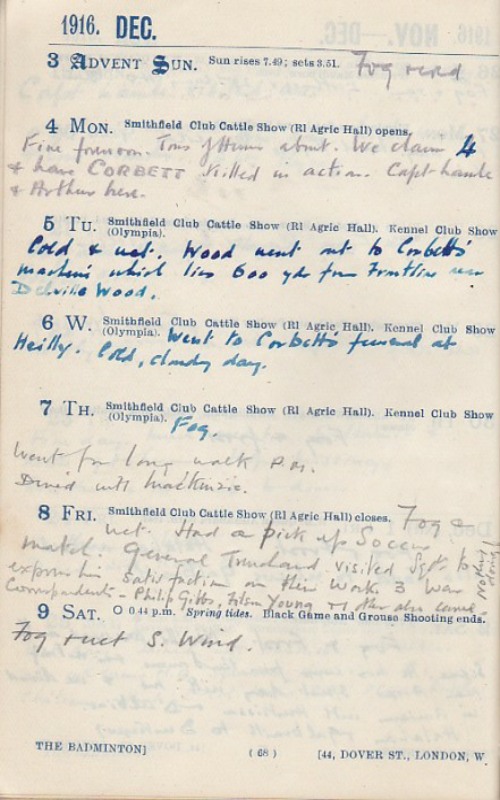 1916. DEC.
3 ADVENT SUN. Sun rises 7.49; sets 3.51. Fog & wind
4 MON. Smithfield Club Cattle Show (Rl Agric Hall) opens.
Fine forenoon. Tons of Huns about. We claim 4
& have CORBETT killed in action. Capt
& Arthur here.
5 TU. Smithfield Club Cattle Show (Rl Agric Hall). Kennel Club Show
(Olympia).
Cold & wet. Wood went out to Corbett's
machine which lies 600 yds from Frontline near
Delville Wood.
6 W. Smithfield Club Cattle Show (Rl Agric Hall). Kennel Club Show
(Olympia). Went to Corbett's funeral at
Heilly. Cold, cloudy day.
7 TH. Smithfield Club Cattle Show (Rl Agric Hall). Kennel Club Show
(Olympia). Fog.
Went for long walk
Dined with Mackenzie.
8 FRI. Smithfield Club Cattle Show (Rl Agric Hall) closes. Fog &
wet. Had a pick up Soccer
match. General Trenchard visited Sqdn to
express his satisfaction on their work. 3 War
Correspondents - Philip Gibbs, Filson Young & other also came
9 SAT. O 0.44 p.m. Spring tides. Black Game and Grouse Shooting ends.
Fog & wet S. Wind.
THE BADMINTON] (68) [44, DOVER ST., LONDON, W